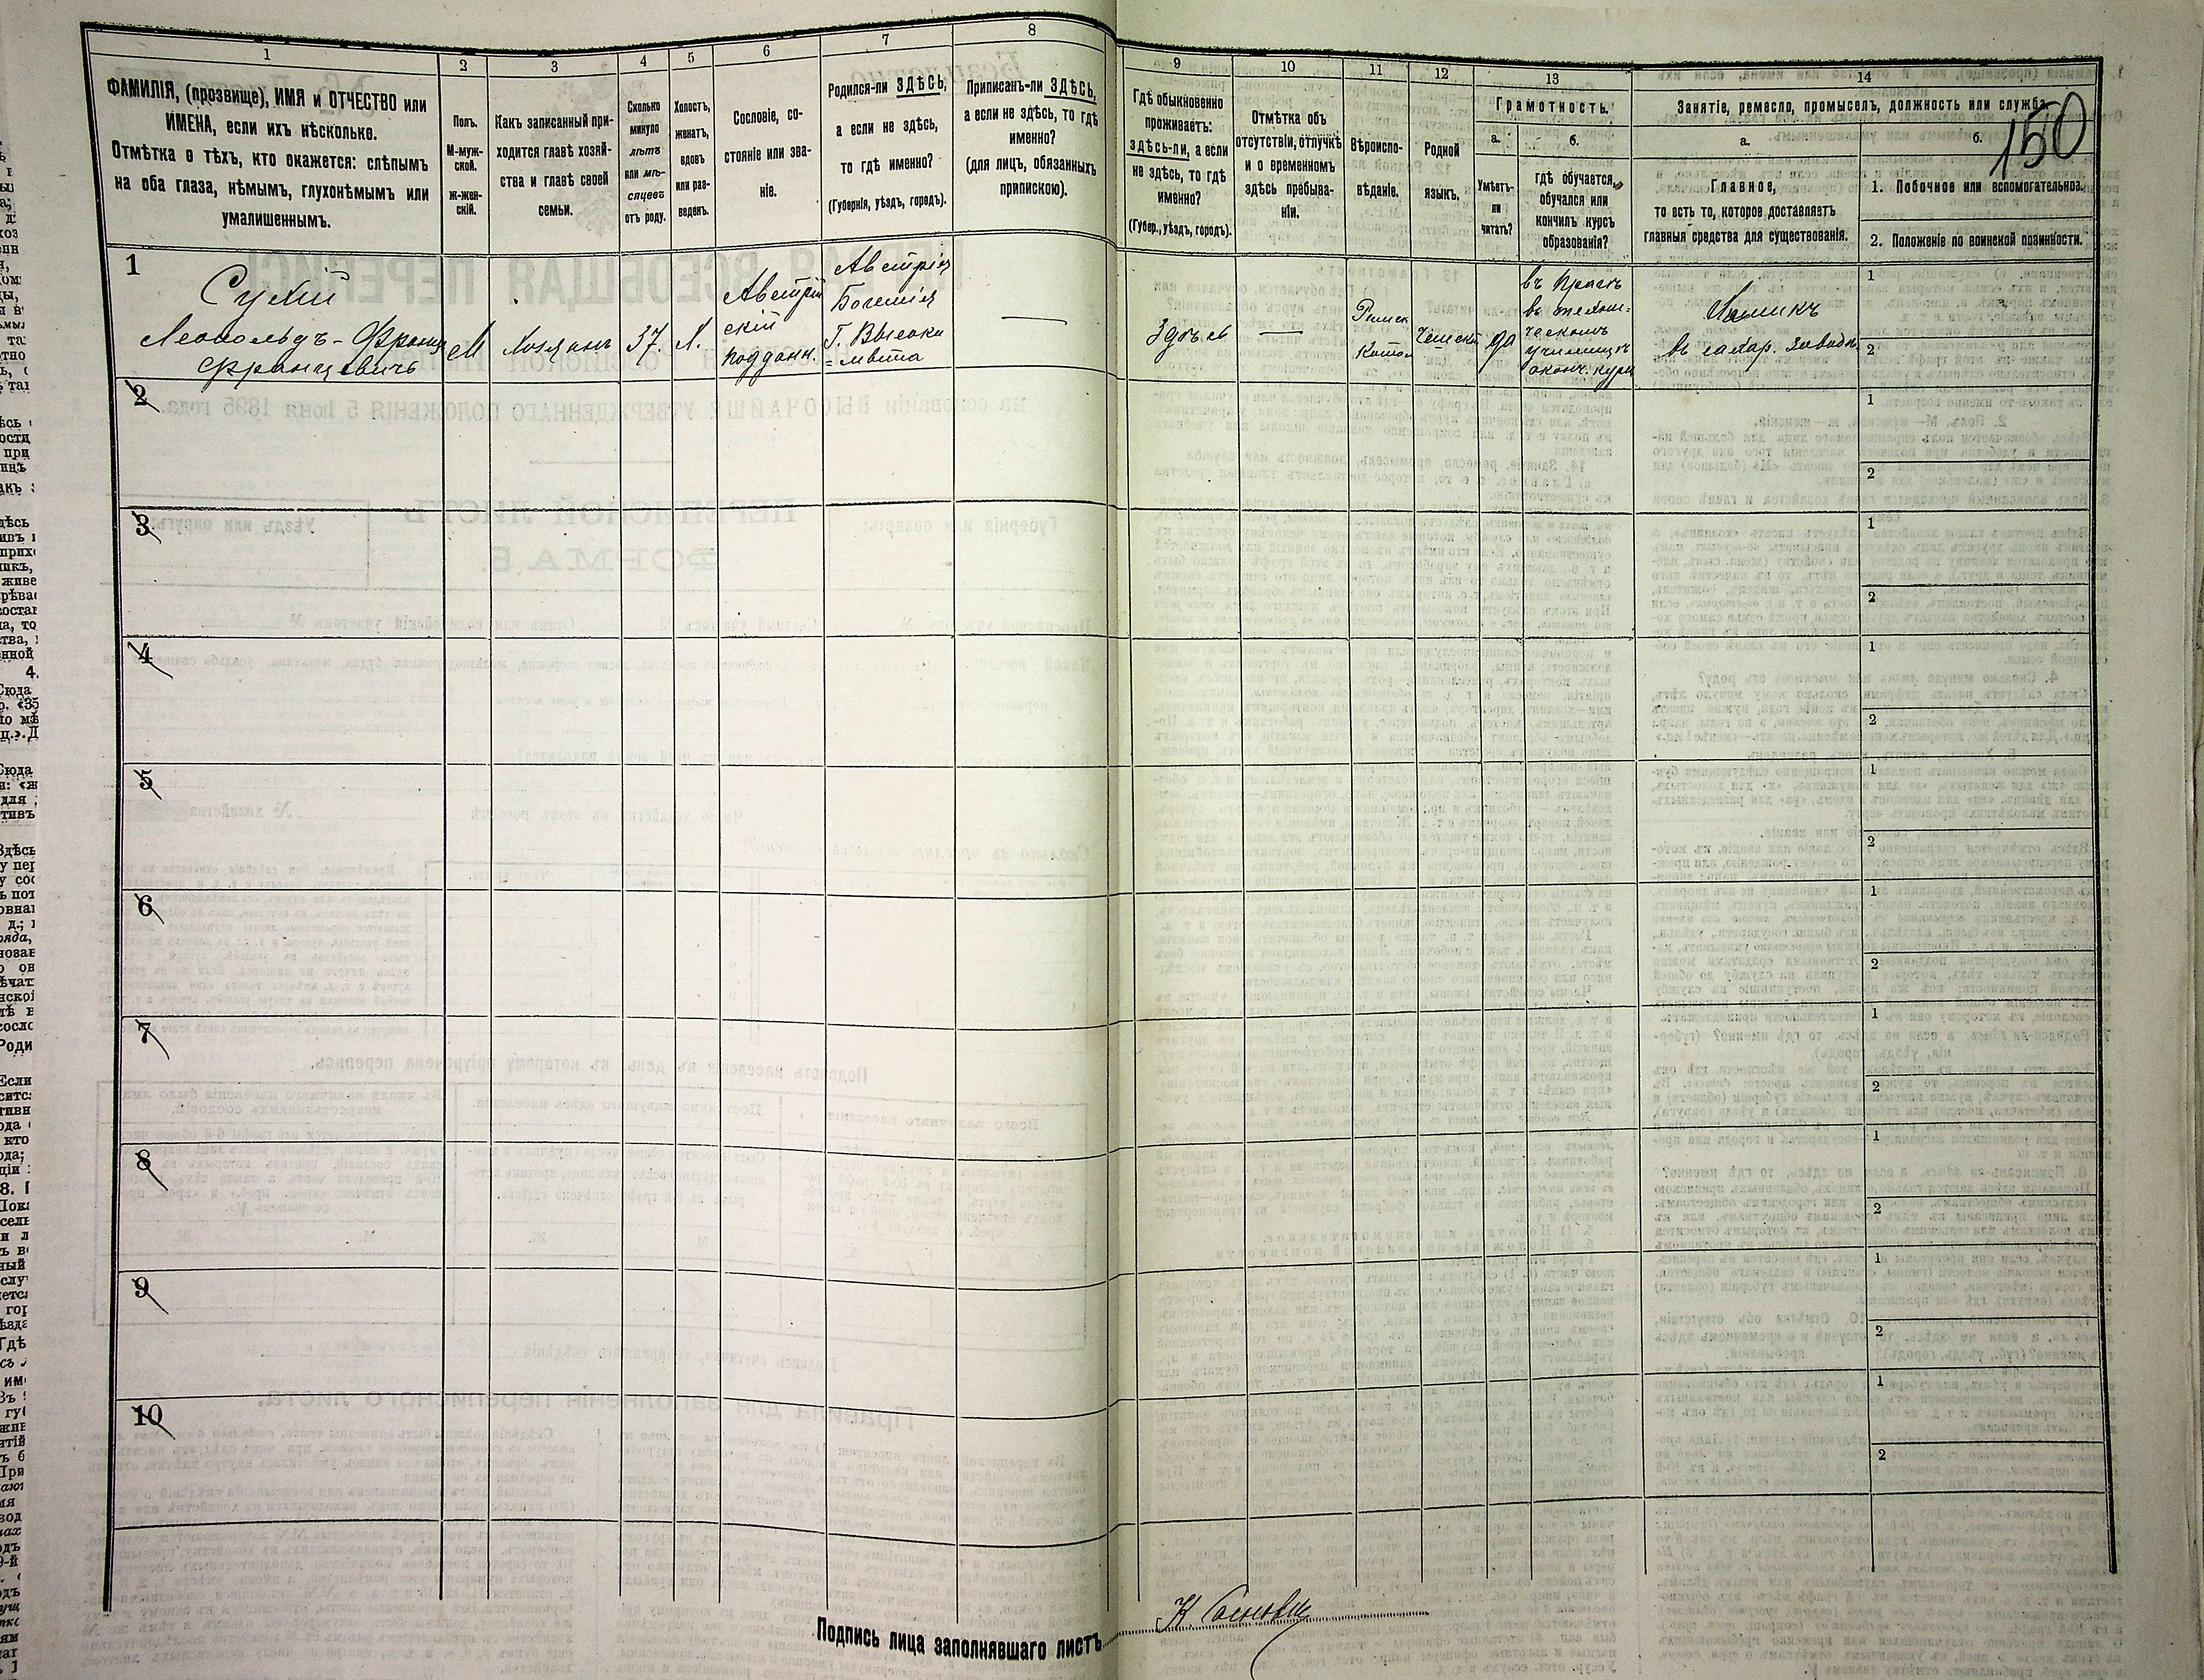 1
2
3
4
5
6
7
8
9
10
11
12
13
14
150
ФАМИЛІЯ, (прозвище), ИМЯ и ОТЧЕСТВО или
ИМЕНА, если ихъ нѣсколько.
Отмѣтка о тѣхъ, кто окажется: слѣпымъ
на оба глаза, нѣмымъ, глухонѣмымъ или
умалишеннымъ.
Полъ.
М-муж-
ской.
ж-жен-
скій.
Какъ записанный при-
ходится главѣ хозяй-
ства и главѣ своей
семьи.
Сколько
минуло
лѣтъ
или мѣ-
сяцевъ
отъ роду.
Холостъ,
женатъ,
вдовъ
или раз-
веденъ.
Сословіе, со-
стояніе или зва-
ніе.
Родился-ли ЗДѢСЬ,
а если не здѣсь,
то гдѣ именно?
(Губернія, уѣздъ, городъ).
Приписанъ-ли ЗДѢСЬ,
а если не здѣсь, то гдѣ
именно?
(для лицъ, обязанныхъ
припискою).
Гдѣ обыкновенно
проживаетъ:
здѣсь-ли, а если
не здѣсь, то гдѣ
именно?
(Губер., уѣздъ, городъ).
Отмѣтка объ
отсутствіи, отлучкѣ
и о временномъ
здѣсь пребыва-
ніи.
Вѣроиспо-
вѣданіе.
Родной
языкъ.
Грамотность.
а.
Умѣетъ-
ли
читать?
б.
гдѣ обучается,
обучался или
кончилъ курсъ
образованія?
Занятіе, ремесло, промыселъ, должность или служба.
а.
Главное,
то есть то, которое доставляетъ
главныя средства для существованія.
б.
1. Побочное или вспомогательное.
2. Положеніе по воинской повинности.
1
Сухій
Леопольдъ-Францъ
Францевичъ
М
Хозяинъ
37.
Х.
Австрій
скій
поддан.
Австрія
Богемія
Г. Высоко
=мыта
Здѣсь
Римск
Катол
Чешскій
да
въ Прагѣ
въ техни=
ческомъ
училищѣ
оконч. курс
Химикъ
въ сахар. заводѣ
1
2
2
1
2
3
1
2
4
1
2
5
1
2
6
1
2
7
1
2
8
1
2
9
1
2
10
1
2
Подпись лица заполнявшаго листъ
К.